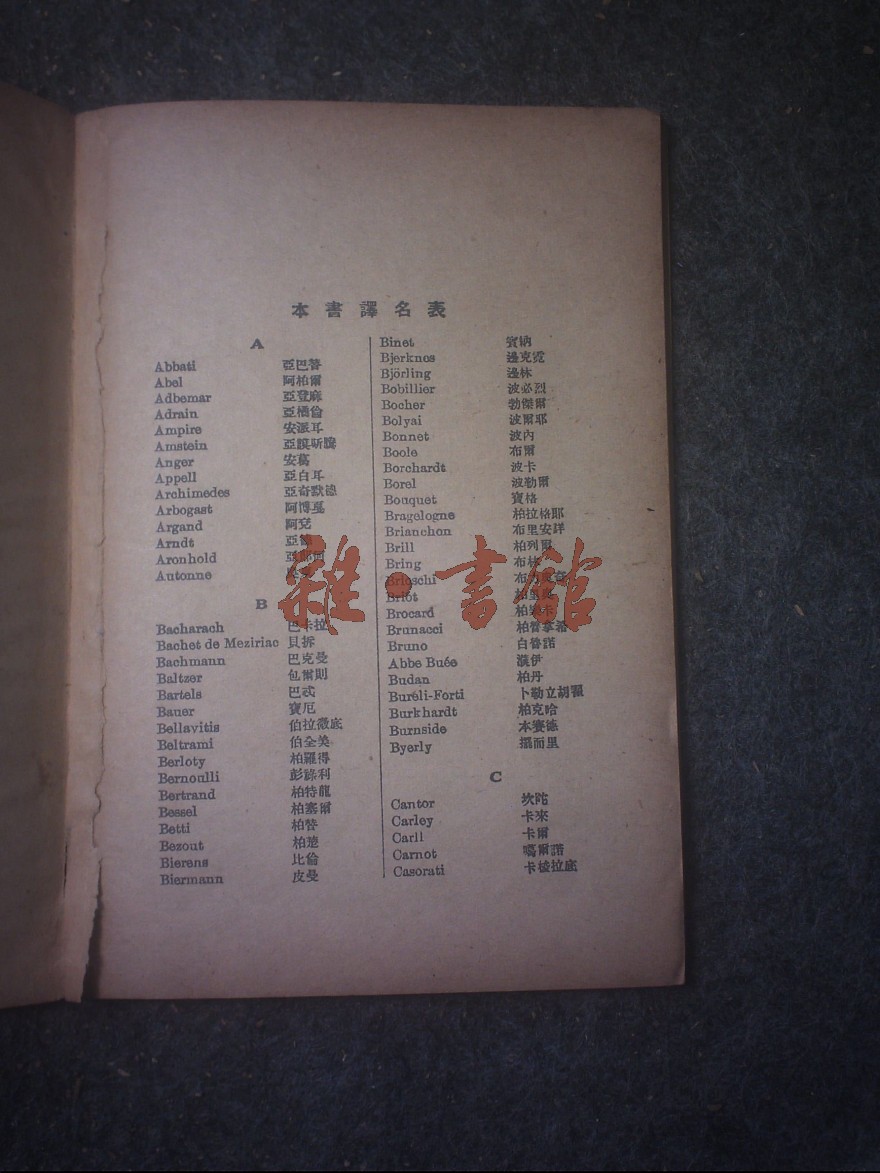 本書譯名表
A
Abbati 亞巴替
Abel 阿柏爾
Adbemar 亞登麻
Adrain 亞橋倫
Ampire 安派耳
Amstein 亞謨斯騰
Anger 安葛
Appell 亞白耳
Archimedes 亞奇默德
Arbogast 阿博戛
Argand 阿兗
Arndt
Aronhold
Autonne
B
Bacharach 巴卡拉
Bachet de Meziriac 貝拆
Bachmann 巴克曼
Baltzer 包爾則
Bartels 巴忒
Bauer 寶厄
Bellavitis 伯拉微底
Beltrami 伯全美
Berloty 柏羅得
Bernoulli 彭祿利
Bertrand 柏特龍
Bessel 柏塞爾
Betti 柏替
Bezout 柏楚
Bierens 比倫
Biermann 皮曼
Binet 賓納
Bjerknes 邊克霓
Björling 邊林
Bobillier 波必烈
Bocher 勃傑爾
Bolyai 波爾耶
Bonnet 波內
Boole 布爾
Borchardt 波卡
Borel 波勒爾
Bouquet 寶格
Bragelogne 柏拉格耶
Brianchon 布里安詳
Brill 柏列爾
Bring 布林
Brioschi
Briot
Brocard
Brunacci 柏魯拿希
Bruno 白魯諾
Abbe Buée 濮伊
Budan 柏丹
Bureli-Forti 卜勒立胡翟
Burkhardt 柏克哈
Burnside 本賽德
Byerly 擺而里
C
Cantor 坎陀
Carley 卡來
Carll 卡爾
Carnot 噶爾諾
Casorati 卡梭拉底
雜·書館